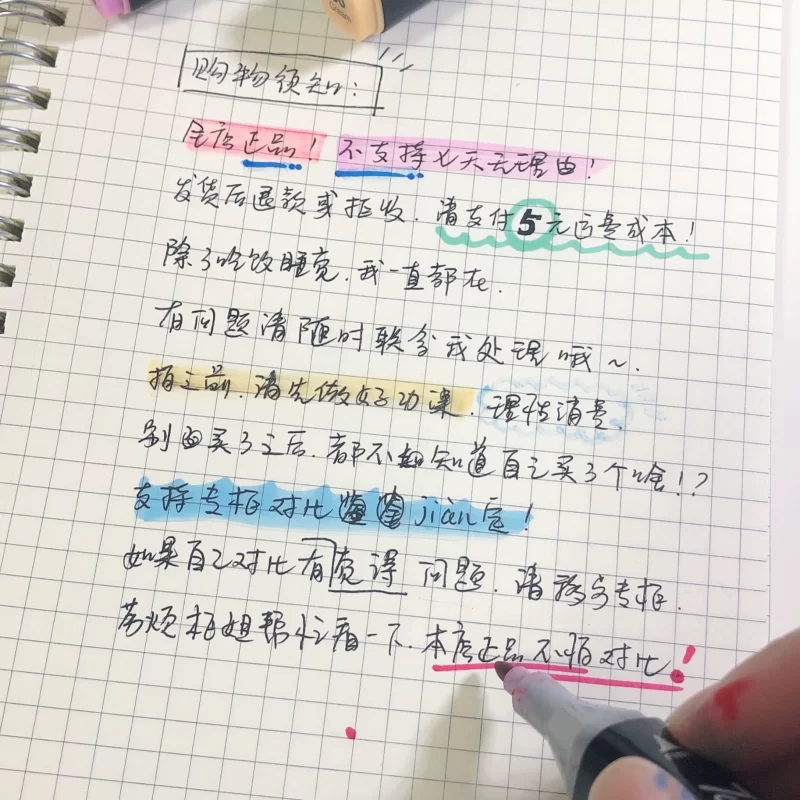 购物须知:
全店正品! 不支持七天无理由!
发货后退款或拒收.请支付5元运费成本!
除了吃饭睡觉.我一直都在.
有问题请随时联系我处理哦~.
拍之前.请先做好功课.理性消费.
别回买了之后.都不知道自己买了个啥!?
支持专柜对比jian定!
如果自己对比有觉得问题.请移步专柜.
劳烦柜姐帮忙看一下.本店正品不怕对比!